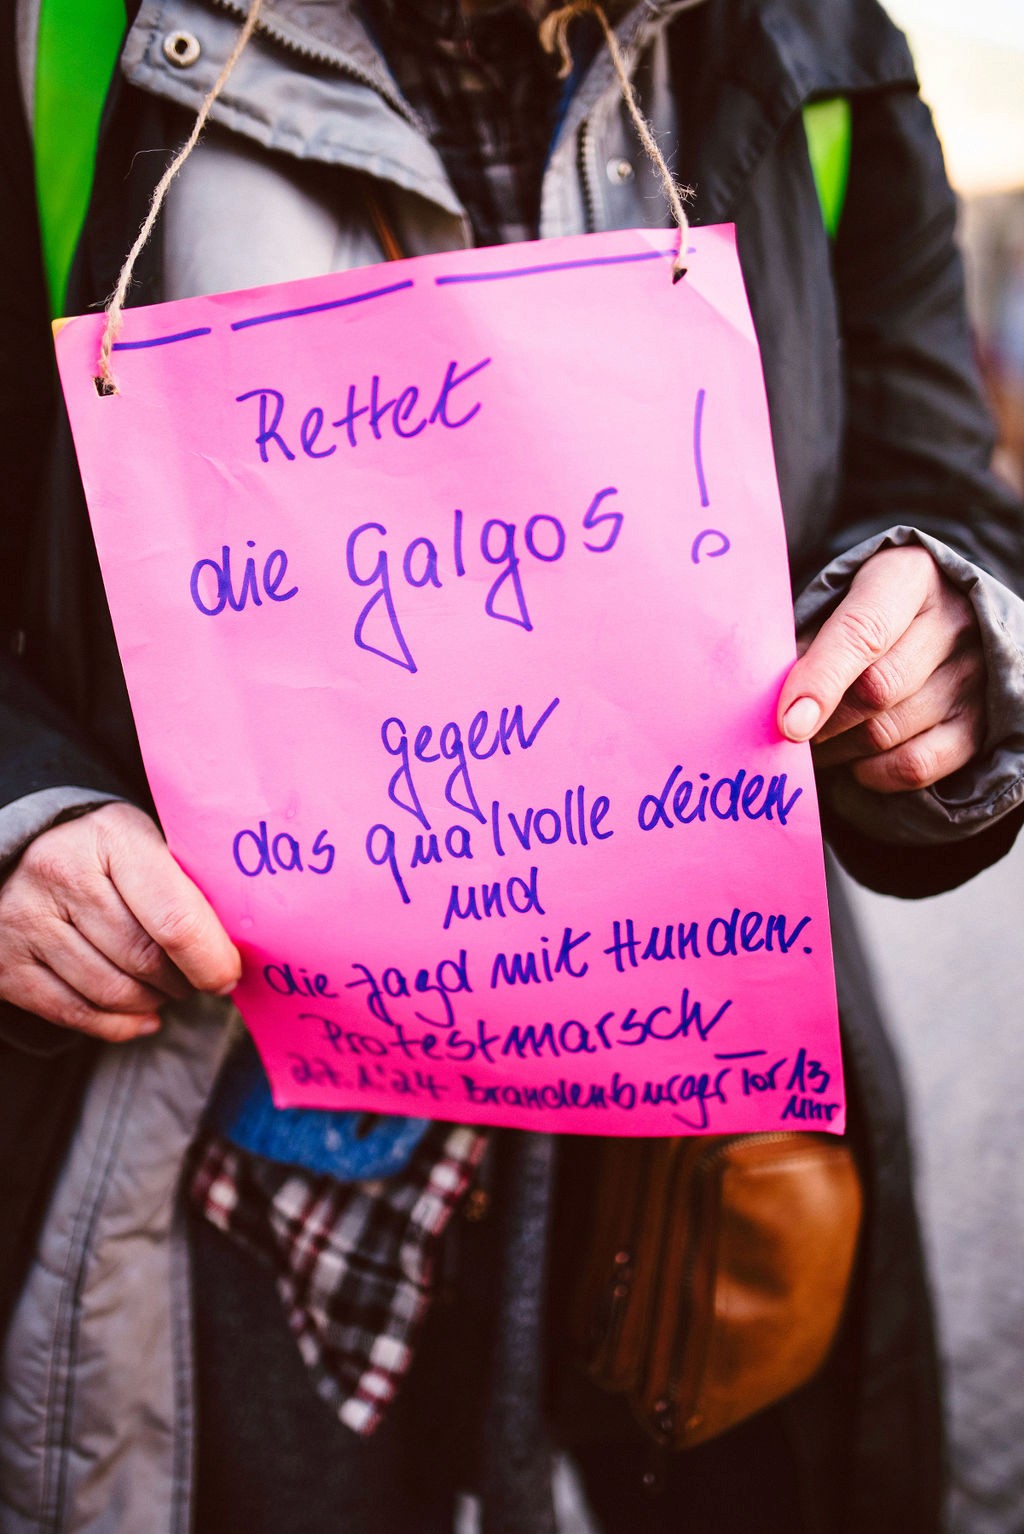 Rettet
die Galgos!
gegen
das qualvolle Leiden
und
die Jagd mit Hunden.
Protestmarsch
27.1.24 Brandenburger Tor 13
Uhr